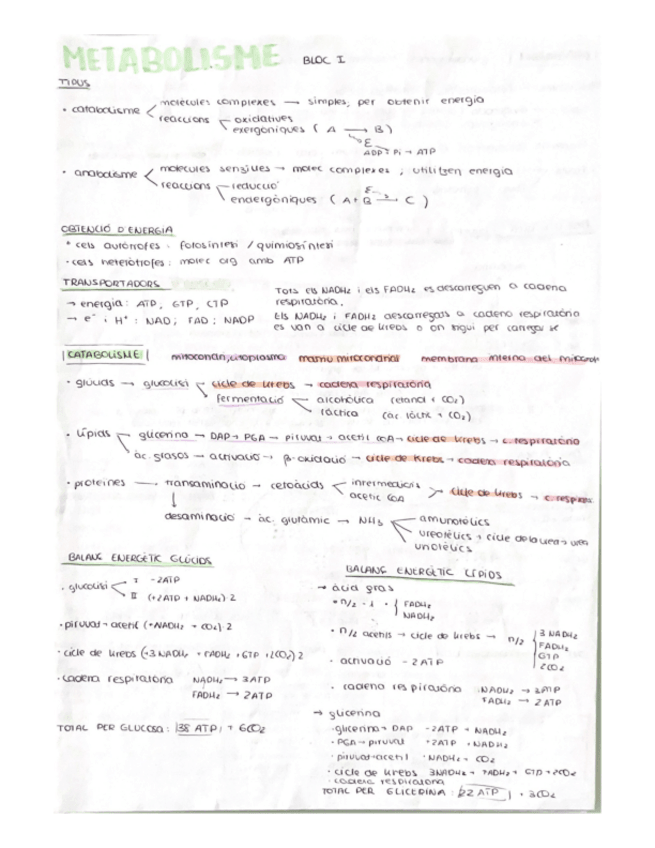 METABOLISME BLOC I
TIPUS
· catabolisme < molècules complexes → simples, per obtenir energia
reaccions < oxidatives
exergòniques ( A → B )
E
ADP + Pi → ATP
· anabolisme < molècules senzilles → molec complexes ; utilitzen energia
reaccions < reducció
endergòniques ( A + B → C )
E
OBTENCIÓ D'ENERGIA
· cels autòtrofes : fotosíntesi / quimiosíntesi
· cels heteròtrofes : molec org amb ATP
TRANSPORTADORS
→ energia : ATP, GTP, CTP
→ e⁻ i H⁺ : NAD ; FAD ; NADP
Tots els NADH₂ i els FADH₂ es descarreguen a cadena
respiratòria.
Els NADH₂ i FADH₂ descarregats a cadena respiratòria
es van a cicle de Krebs o on tngui per carregar se
CATABOLISME mitocondri, citoplasma matriu mitocondrial membrana interna del mitocondri
· glúcids → glucòlisi < cicle de Krebs → cadena respiratòria
fermentació < alcohòlica (etanol + CO₂)
làctica (ac. làctic + CO₂)
· lípids < glicerina → DAP → PGA → piruvat → acetil CoA → cicle de Krebs → c. respiratòria
àc. grasos → activació → β-oxidació → cicle de Krebs → cadena respiratòria
· proteïnes → transaminació → cetoàcids < intermediaris > cicle de Krebs → c. respira
acetil CoA
desaminació → àc. glutàmic → NH₃ < amunotèlics
ureotèlics → cicle de la urea → urea
uricotèlics
BALANÇ ENERGÈTIC GLÚCIDS
· glucòlisi < I -2ATP
II (+2ATP + NADH₂)·2
· piruvat → acetil (+NADH₂ + CO₂)·2
· cicle de Krebs (+3NADH₂ + FADH₂ + GTP + 2CO₂) 2
· cadena respiratòria NADH₂ → 3ATP
FADH₂ → 2ATP
TOTAL PER GLUCOSA : 38 ATP + 6CO₂
BALANÇ ENERGÈTIC LÍPIDS
→ àcid gras
· n/2 - 1 · { FADH₂
NADH₂
· n/2 acetils → cicle de Krebs → n/2 { 3 NADH₂
FADH₂
GTP
2CO₂
· activació -2ATP
· cadena respiratòria NADH₂ → 3ATP
FADH₂ → 2ATP
→ glicerina
· glicerina → DAP -2ATP + NADH₂
· PGA → piruvat +2ATP + NADH₂
· piruvat → acetil · NADH₂ + CO₂
· cicle de Krebs 3NADH₂ + FADH₂ + GTP + 2CO₂
· cadena respiratòria
TOTAL PER GLICERINA : 22 ATP + 3CO₂